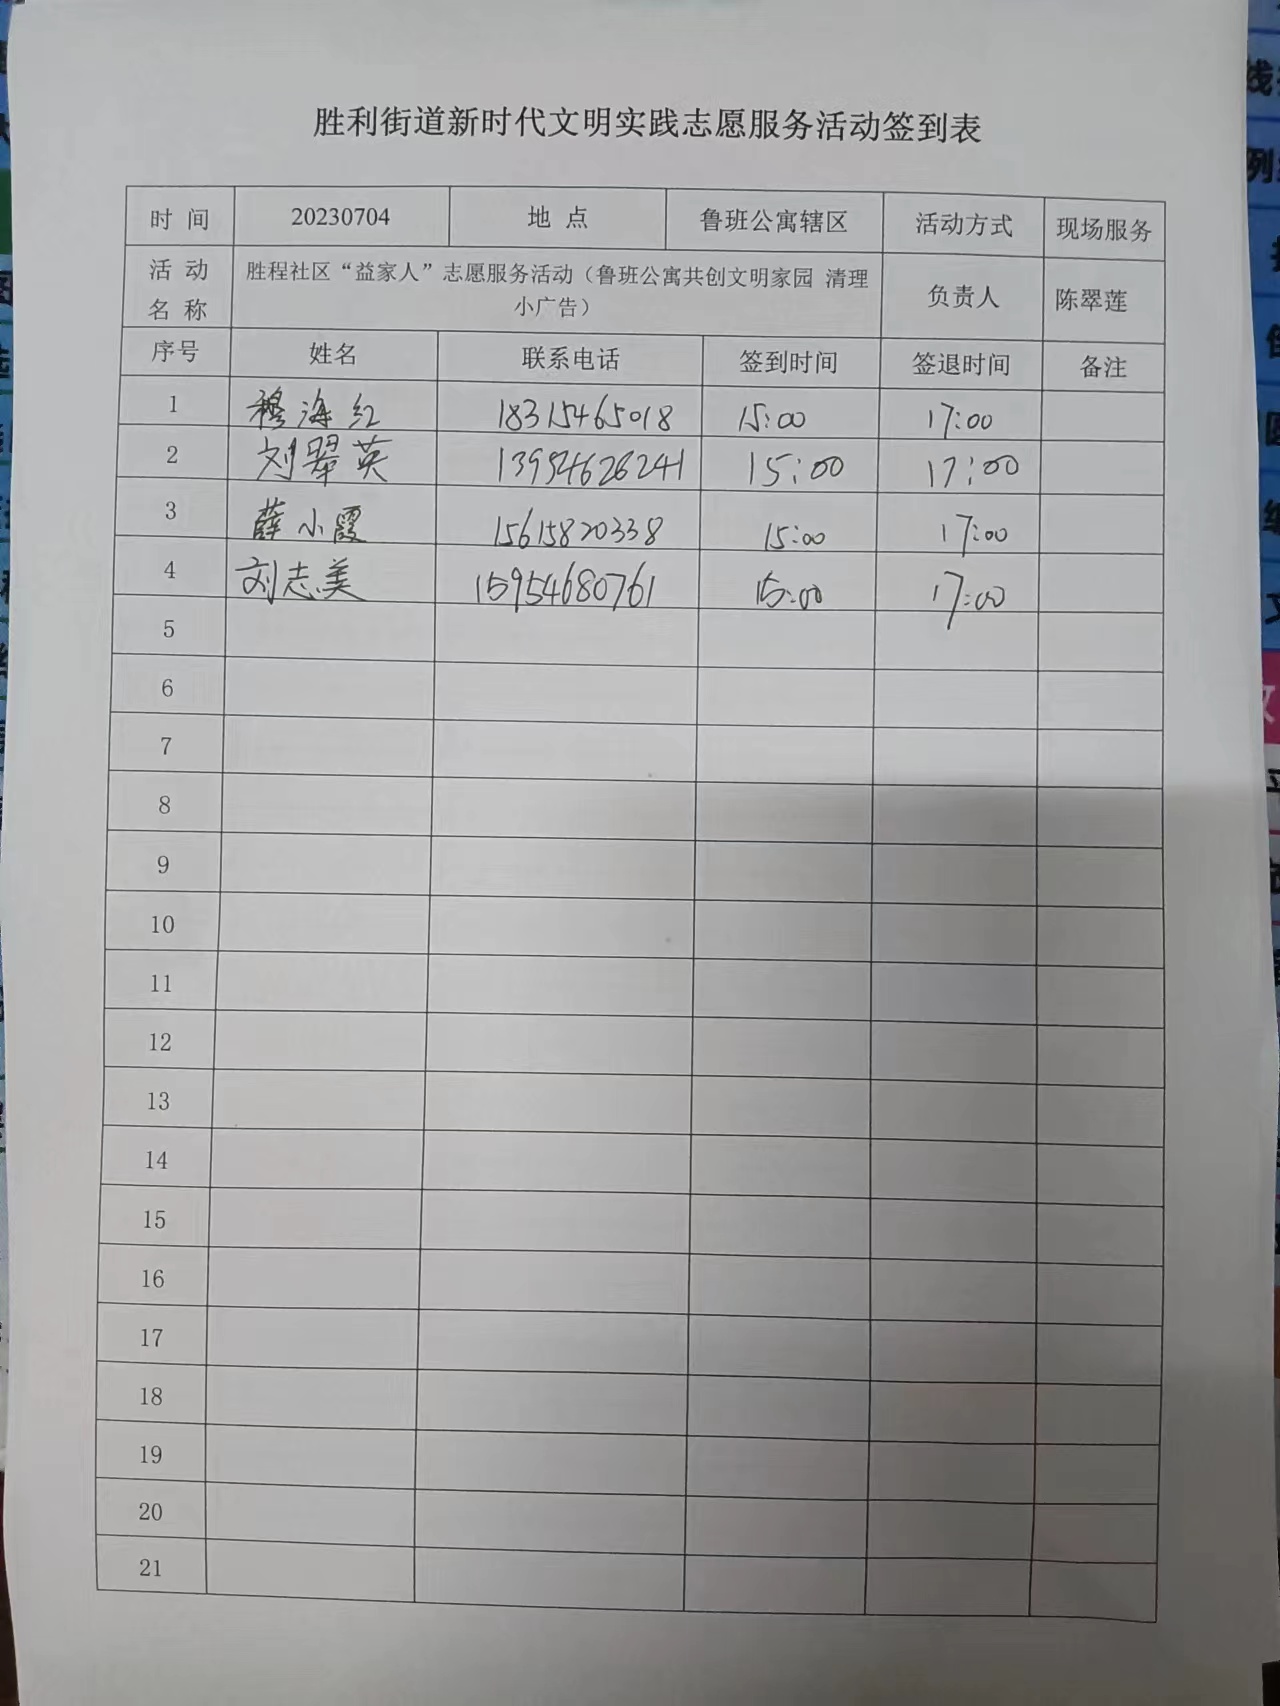 胜利街道新时代文明实践志愿服务活动签到表
时 间 20230704 地 点 鲁班公寓辖区 活动方式 现场服务
活 动 名 称 胜程社区“益家人”志愿服务活动（鲁班公寓共创文明家园 清理 小广告） 负责人 陈翠莲
序号 姓名 联系电话 签到时间 签退时间 备注
1 穆海红 18315465018 15:00 17:00
2 刘翠英 13954626241 15:00 17:00
3 薛小霞 15615820338 15:00 17:00
4 刘志美 15954680761 15:00 17:00
5
6
7
8
9
10
11
12
13
14
15
16
17
18
19
20
21